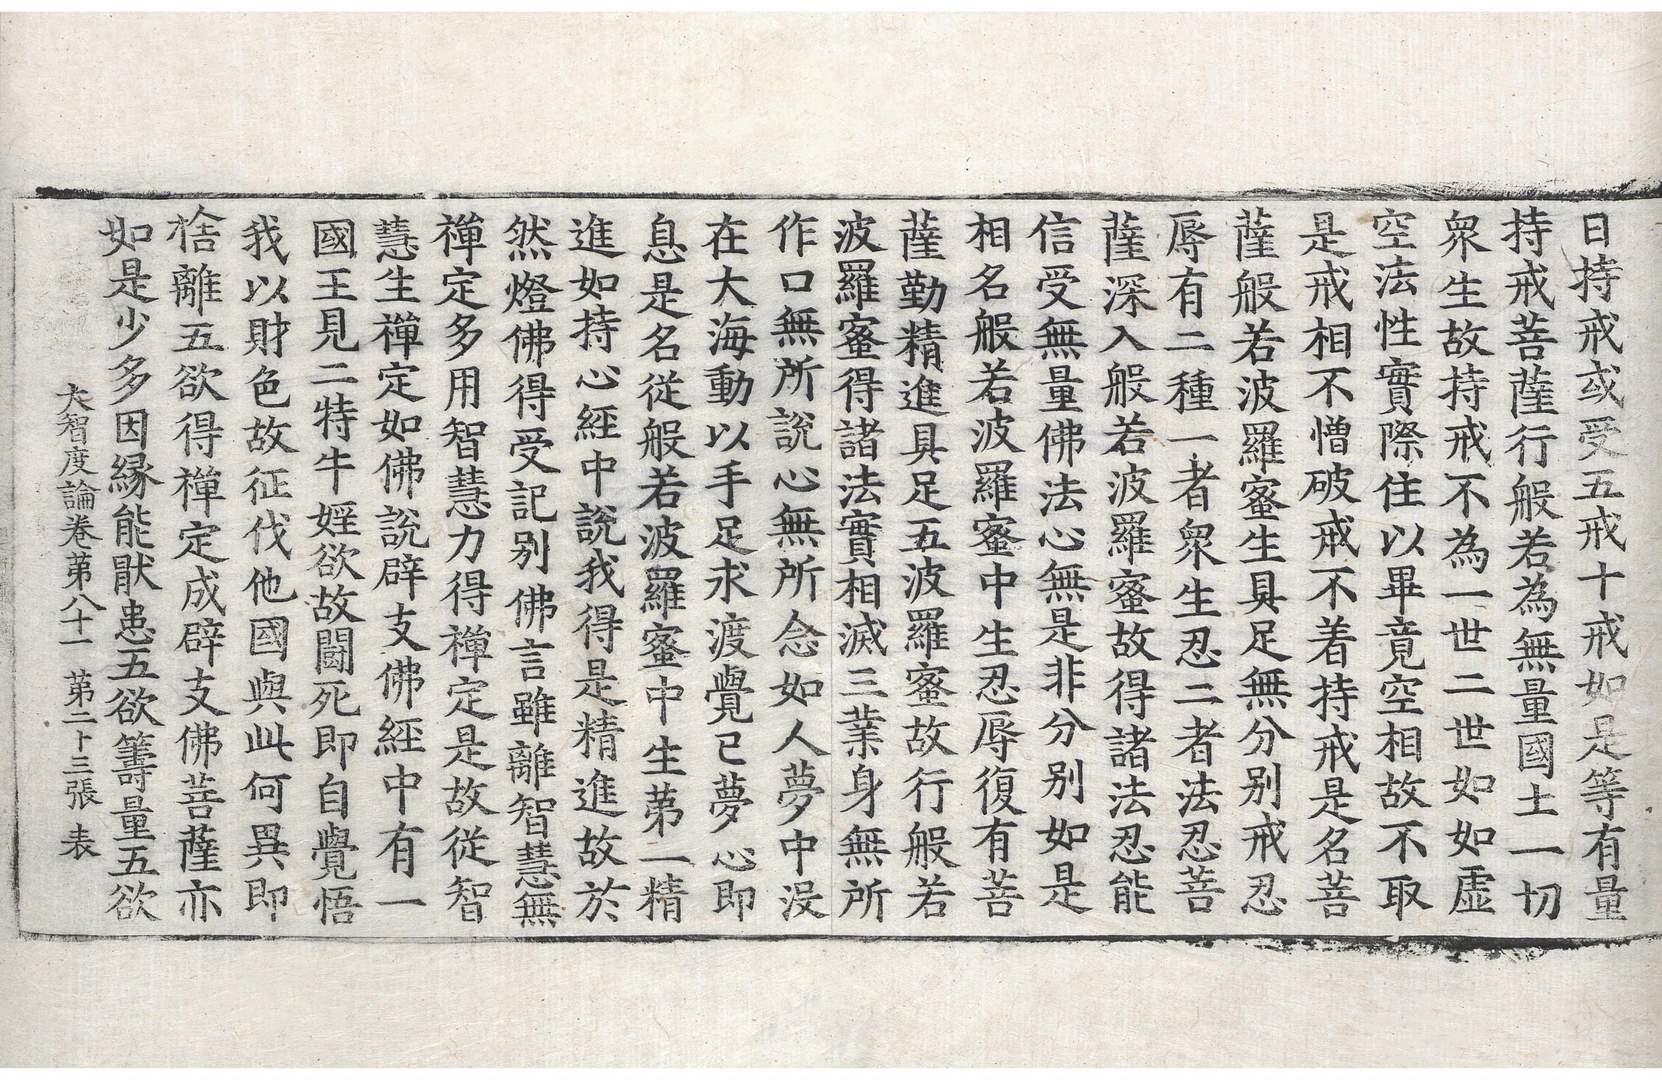 日持戒或受五戒十戒如是等有量
持戒菩薩行般若為無量國土一切
衆生故持戒不為一世二世如如虛
空法性實際住以畢竟空相故不取
是戒相不憎破戒不着持戒是名菩
薩般若波羅蜜生具足無分別戒忍
辱有二種一者衆生忍二者法忍菩
薩深入般若波羅蜜故得諸法忍能
信受無量佛法心無是非分別如是
相名般若波羅蜜中生忍辱復有菩
薩勤精進具足五波羅蜜故行般若
波羅蜜得諸法實相滅三業身無所
作口無所說心無所念如人夢中沒
在大海動以手足求渡覺已夢心即
息是名從般若波羅蜜中生苐一精
進如持心經中說我得是精進故於
然燈佛得受記别佛言雖離智慧無
禪定多用智慧力得禪定是故從智
慧生禪定如佛說辟支佛經中有一
國王見二特牛婬欲故鬪死即自覺悟
我以財色故征伐他國與此何異即
捨離五欲得禪定成辟支佛菩薩亦
如是少多因緣能猒患五欲籌量五欲
大智度論卷苐八十一　苐二十三張　表